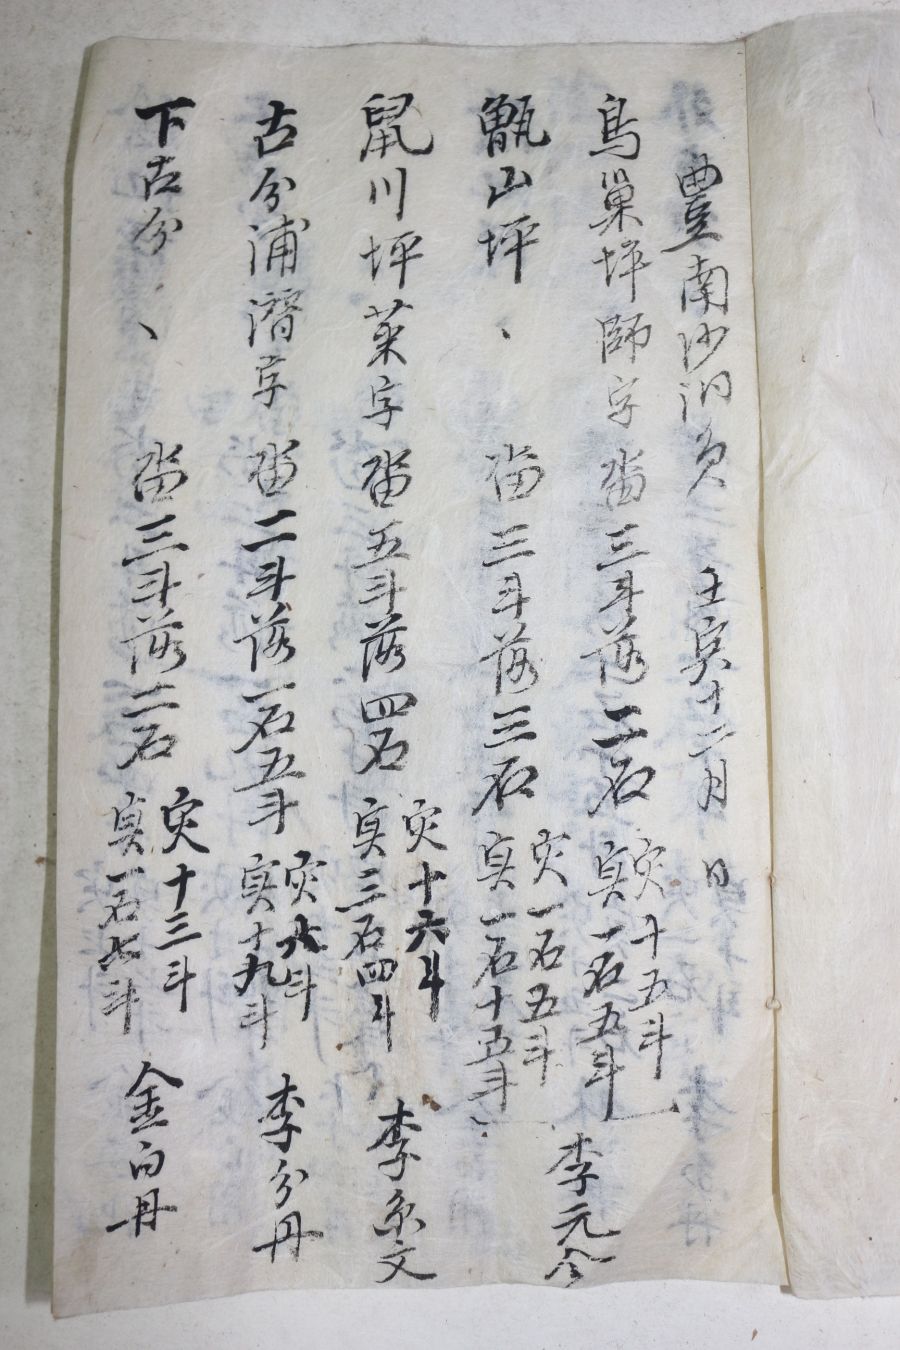 豊南沙洞員 壬寅十二月 日
鳥巢坪師字 畓三斗落二石 灾十五斗
実一石五斗
甑山坪、 畓三斗落三石 灾一石五斗
実一石十五斗
李元今
鼠川坪菜字 畓五斗落四石 灾十六斗
実三石四斗 李京文
古分浦潛字 畓二斗落一石五斗 灾六斗
実十九斗 李分丹
下古分、 畓三斗落二石 灾十三斗
実一石七斗 金白丹